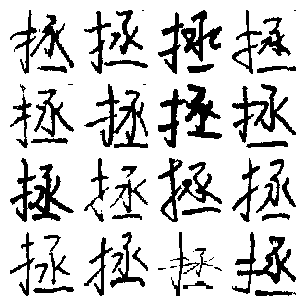 拯拯拯拯
拯拯拯拯
拯拯拯拯
拯拯拯拯